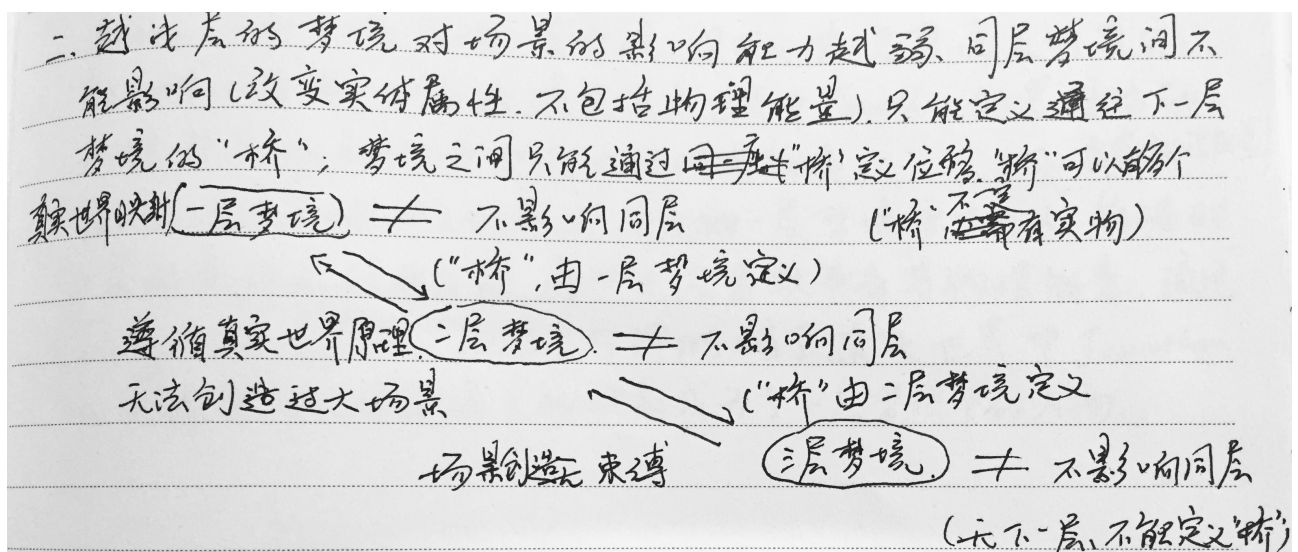 二.越浅层的梦境对场景的影响能力越弱、同层梦境间不
能影响(改变实体属性.不包括物理能量).只能定义通往下一层
梦境的"桥",梦境之间只能通过"桥"定义位移."桥"可以有多个
真实世界映射(一层梦境) ≠ 不影响同层 ("桥"不一定需有实物)
("桥",由一层梦境定义)
遵循真实世界原理.二层梦境. ≠ 不影响同层
无法创造过大场景 ("桥"由二层梦境定义
场景创造无束缚 三层梦境. ≠ 不影响同层
(无下一层、不能定义"桥")